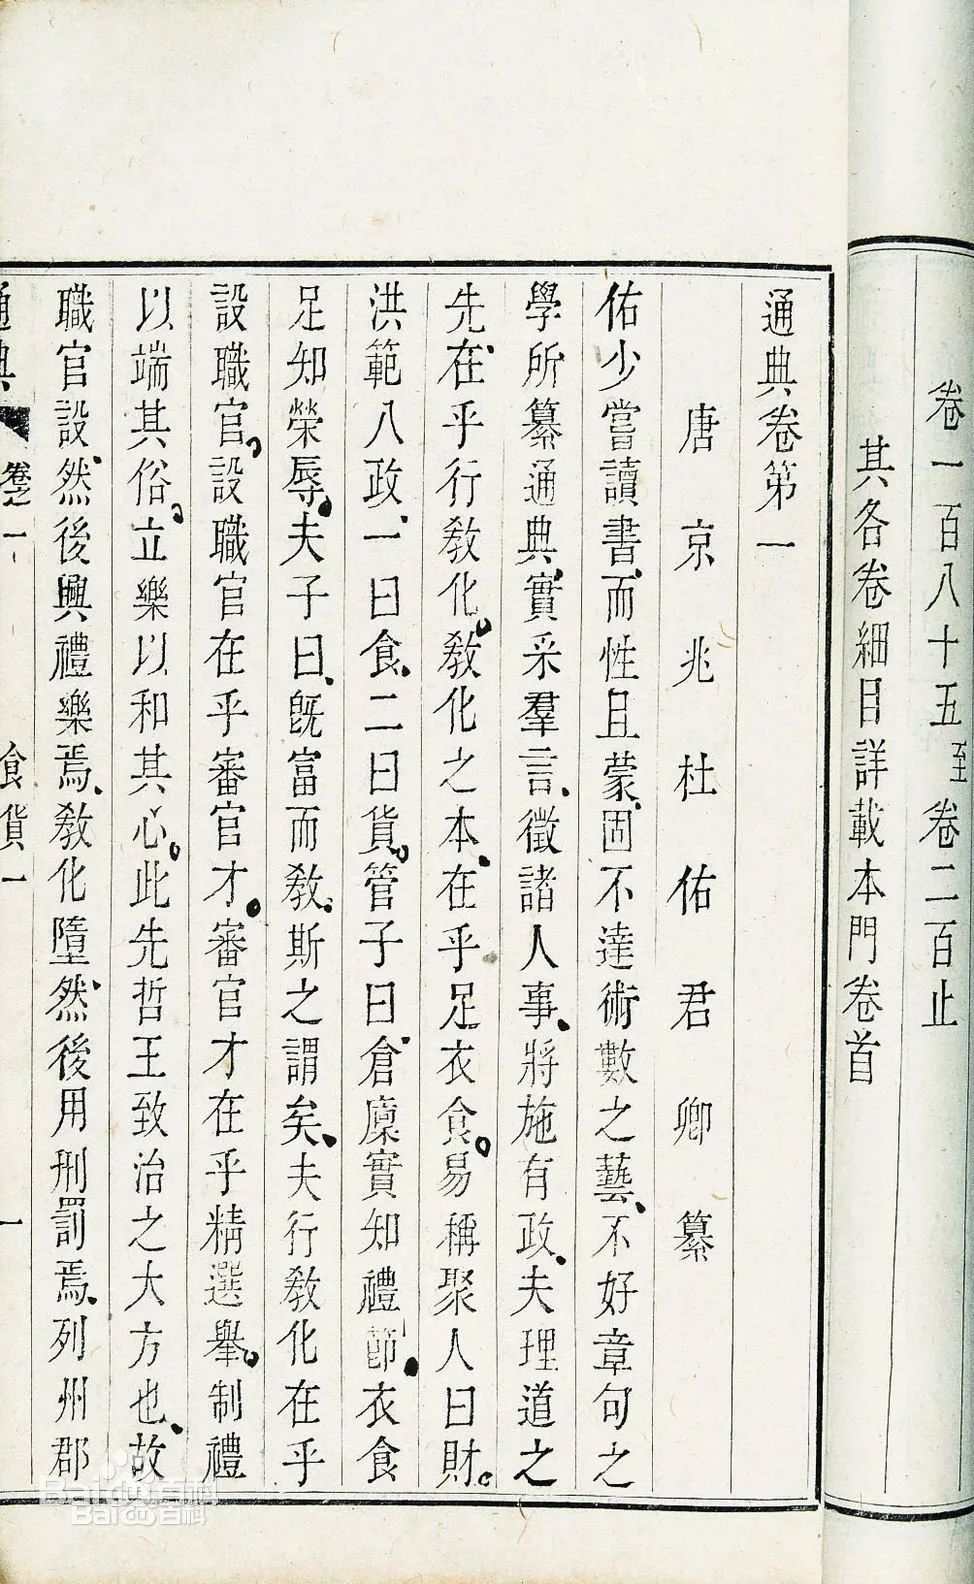 卷一百八十五至卷二百止
其各卷細目詳載本門卷首
通典卷第一
唐京兆杜佑君卿纂
佑少嘗讀書、而性且蒙固、不達術數之藝、不好章句之
學所纂通典、實采羣言、徵諸人事、將施有政、夫理道之
先、在乎行敎化。敎化之本、在乎足衣食。易稱聚人曰財。
洪範八政、一曰食、二曰貨。管子曰、倉廩實知禮節、衣食
足知榮辱。夫子曰、旣富而敎、斯之謂矣、夫行敎化在乎
設職官。設職官在乎審官才。審官才在乎精選舉。制禮
以端其俗。立樂以和其心。此先哲王致治之大方也、故
職官設、然後興禮樂焉、敎化隳、然後用刑罰焉、列州郡
通典 卷之一 食貨一 一
Baidu百科